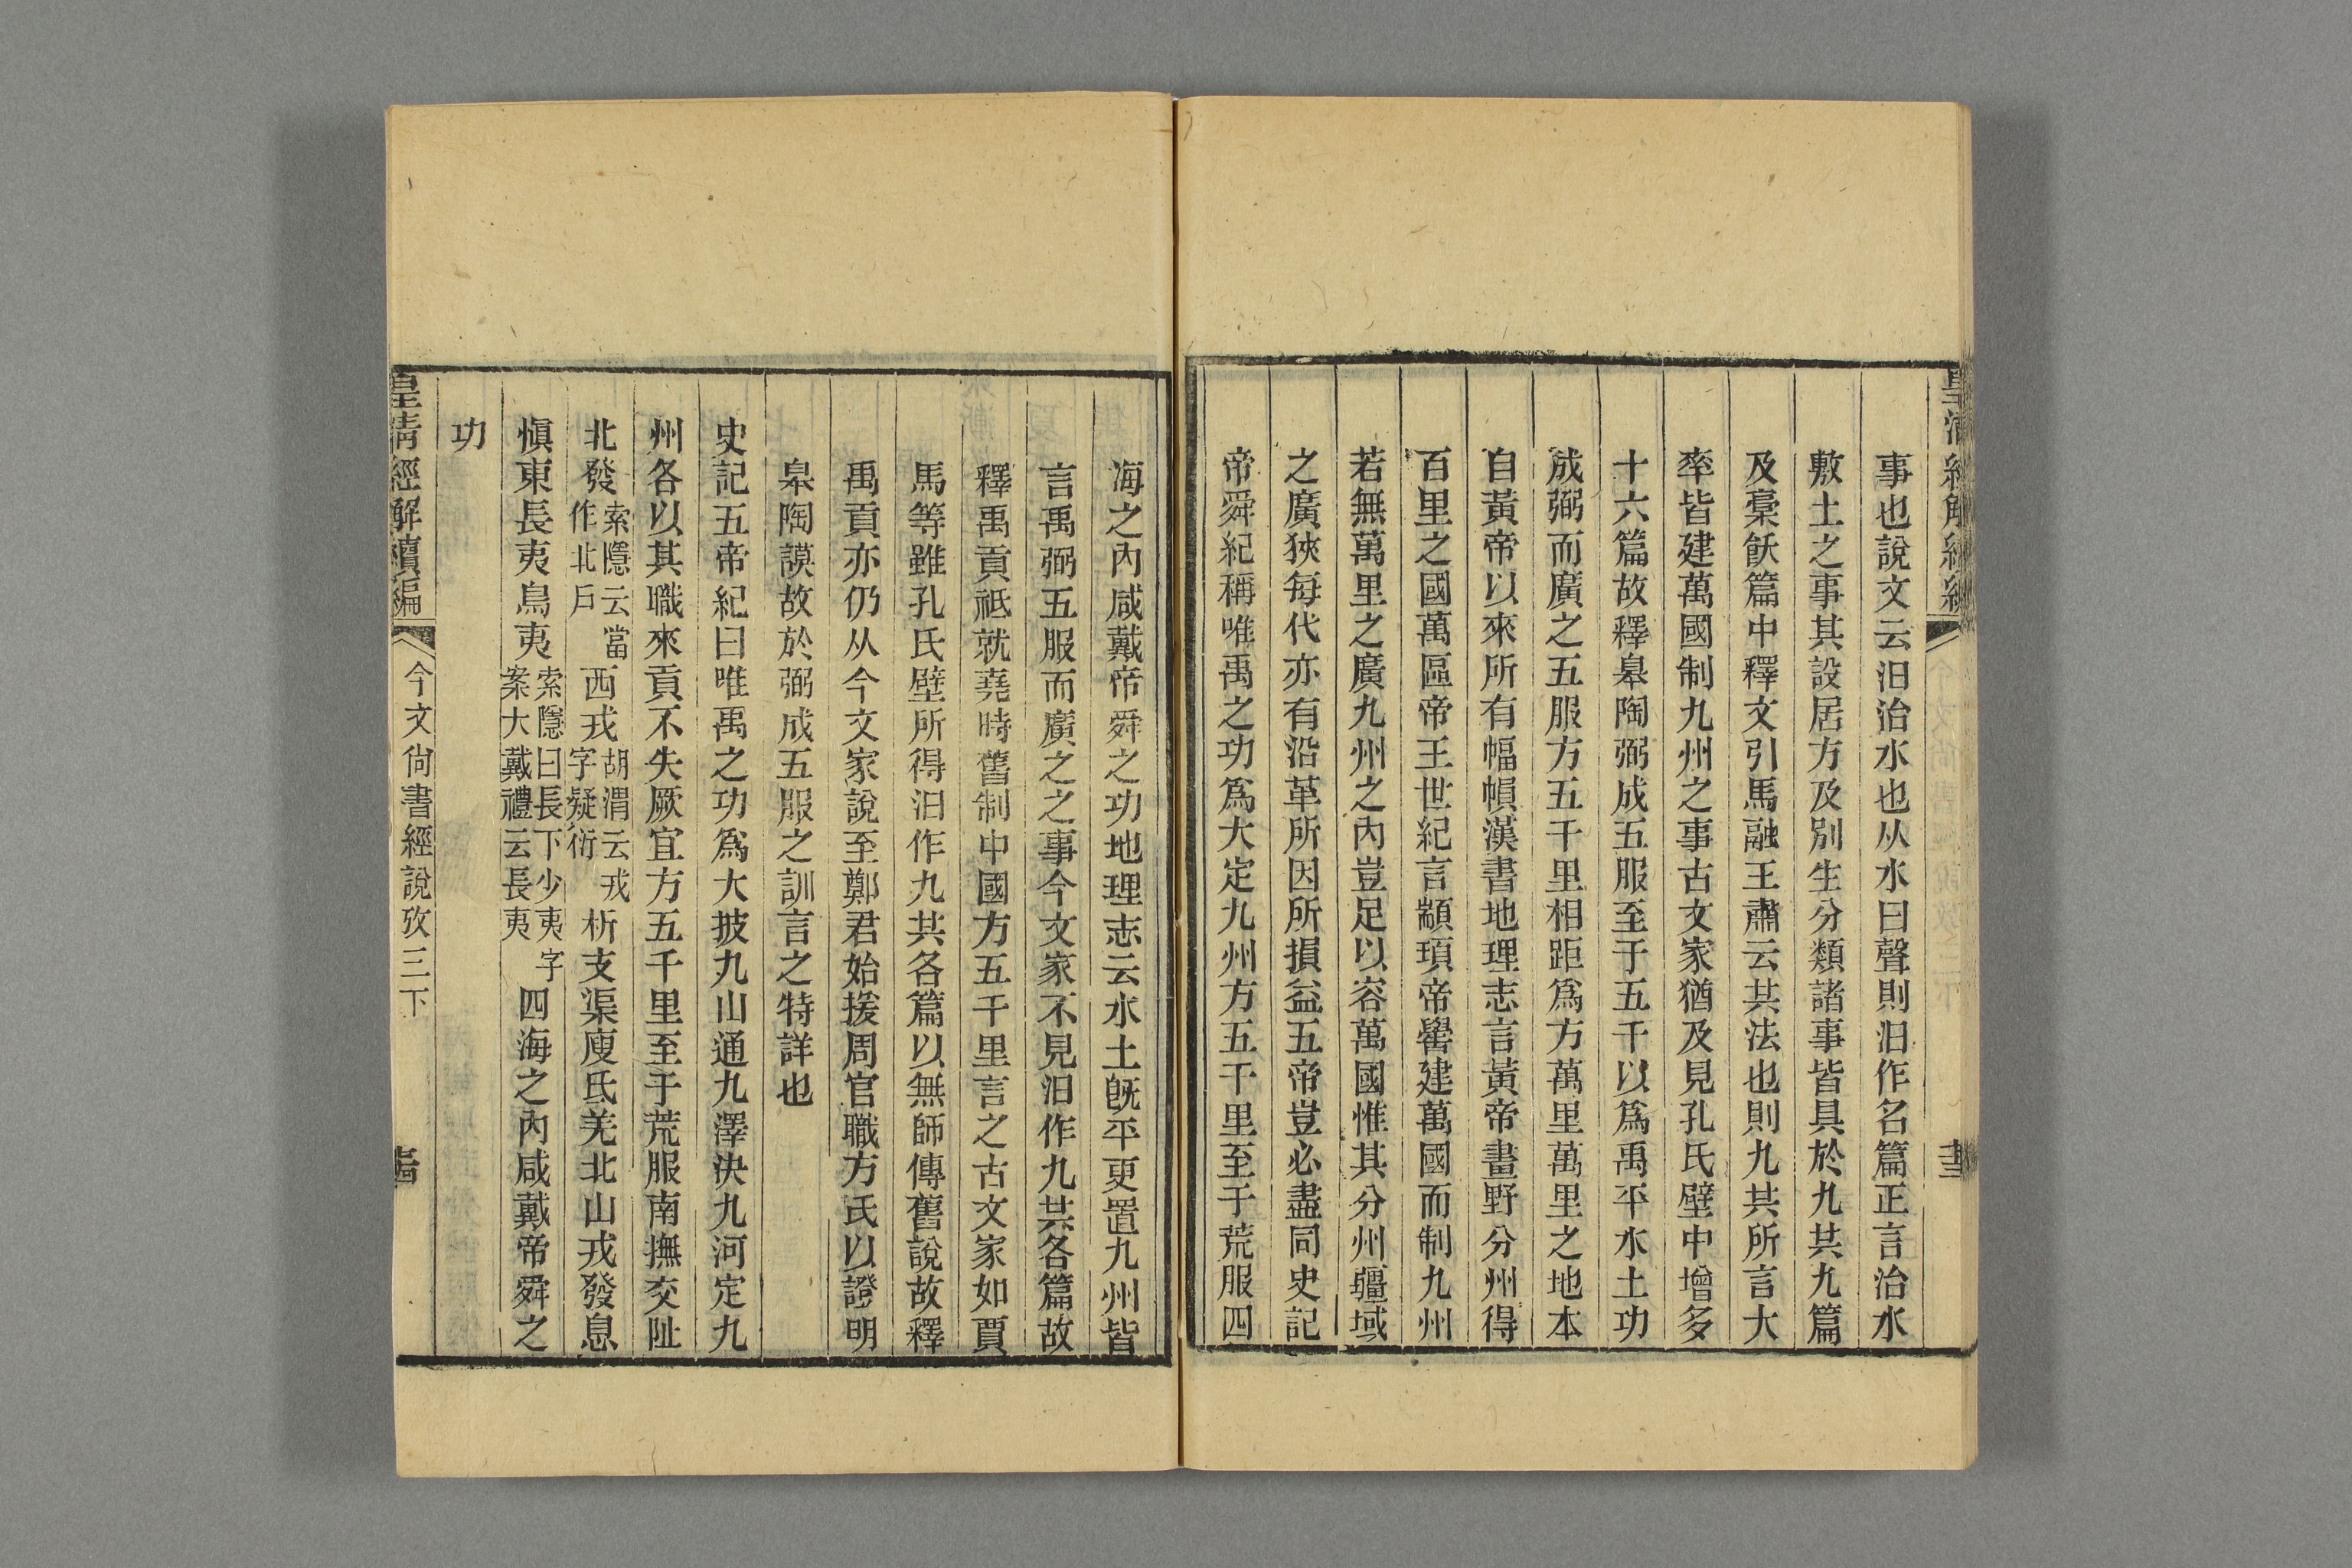 事也說文云汩治水也从水曰聲則汩作名篇正言治水
敷土之事其設居方及別生分類諸事皆具於九共九篇
及稾飫篇中釋文引馬融王肅云共法也則九共所言大
率皆建萬國制九州之事古文家猶及見孔氏壁中增多
十六篇故釋皋陶弼成五服至于五千以爲禹平水土功
成弼而廣之五服方五千里相距爲方萬里萬里之地本
自黃帝以來所有幅幀漢書地理志言黃帝畫野分州得
百里之國萬區帝王世紀言顓頊帝嚳建萬國而制九州
若無萬里之廣九州之內豈足以容萬國惟其分州疆域
之廣狹每代亦有沿革所因所損益五帝豈必盡同史記
帝舜紀稱唯禹之功爲大定九州方五千里至于荒服四
海之內咸戴帝舜之功地理志云水土旣平更置九州皆
言禹弼五服而廣之之事今文家不見汩作九共各篇故
釋禹貢祗就堯時舊制中國方五千里言之古文家如賈
馬等雖孔氏壁所得汩作九共各篇以無師傳舊說故釋
禹貢亦仍从今文家說至鄭君始援周官職方氏以證明
皋陶謨故於弼成五服之訓言之特詳也
史記五帝紀曰唯禹之功爲大披九山通九澤決九河定九
州各以其職來貢不失厥宜方五千里至于荒服南撫交阯
北發索隱云當作北戶西戎胡渭云戎字疑衍析支渠廋氐羌北山戎發息
愼東長夷鳥夷索隱曰長下少夷字案大戴禮云長夷四海之內咸戴帝舜之
功
皇清經解續編
今文尙書經說攷三下